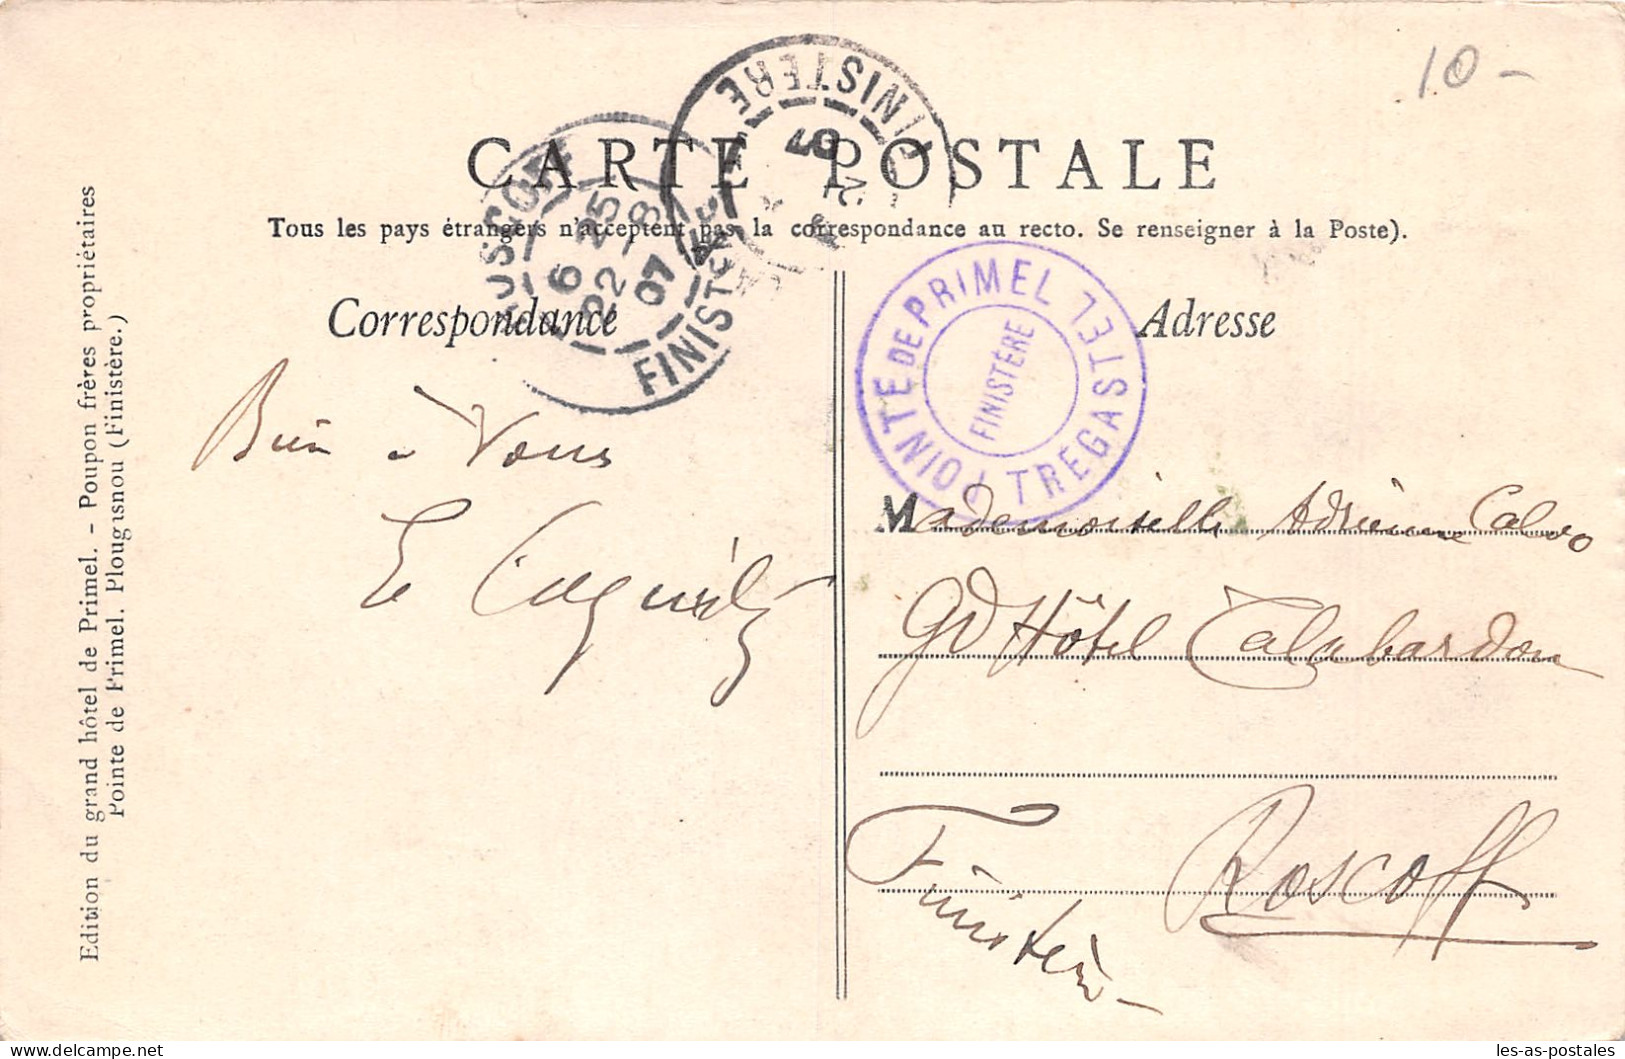 10 -
CARTE POSTALE
Tous les pays étrangers n'acceptent pas la correspondance au recto. Se renseigner à la Poste).
FINISTERE
07
ROSCOFF
6 25
22 - 8
07
FINISTERE
POINTE DE PRIMEL TREGASTEL
FINISTÈRE
Correspondance
Adresse
Bien à Vous
Mademoiselle Adrienne Calvo
Gd Hôtel Talabardon
Roscoff
Finistère
Edition du grand hôtel de Primel. - Poupon frères propriétaires
Pointe de Primel. Plougisnou (Finistère.)
les-as-postales